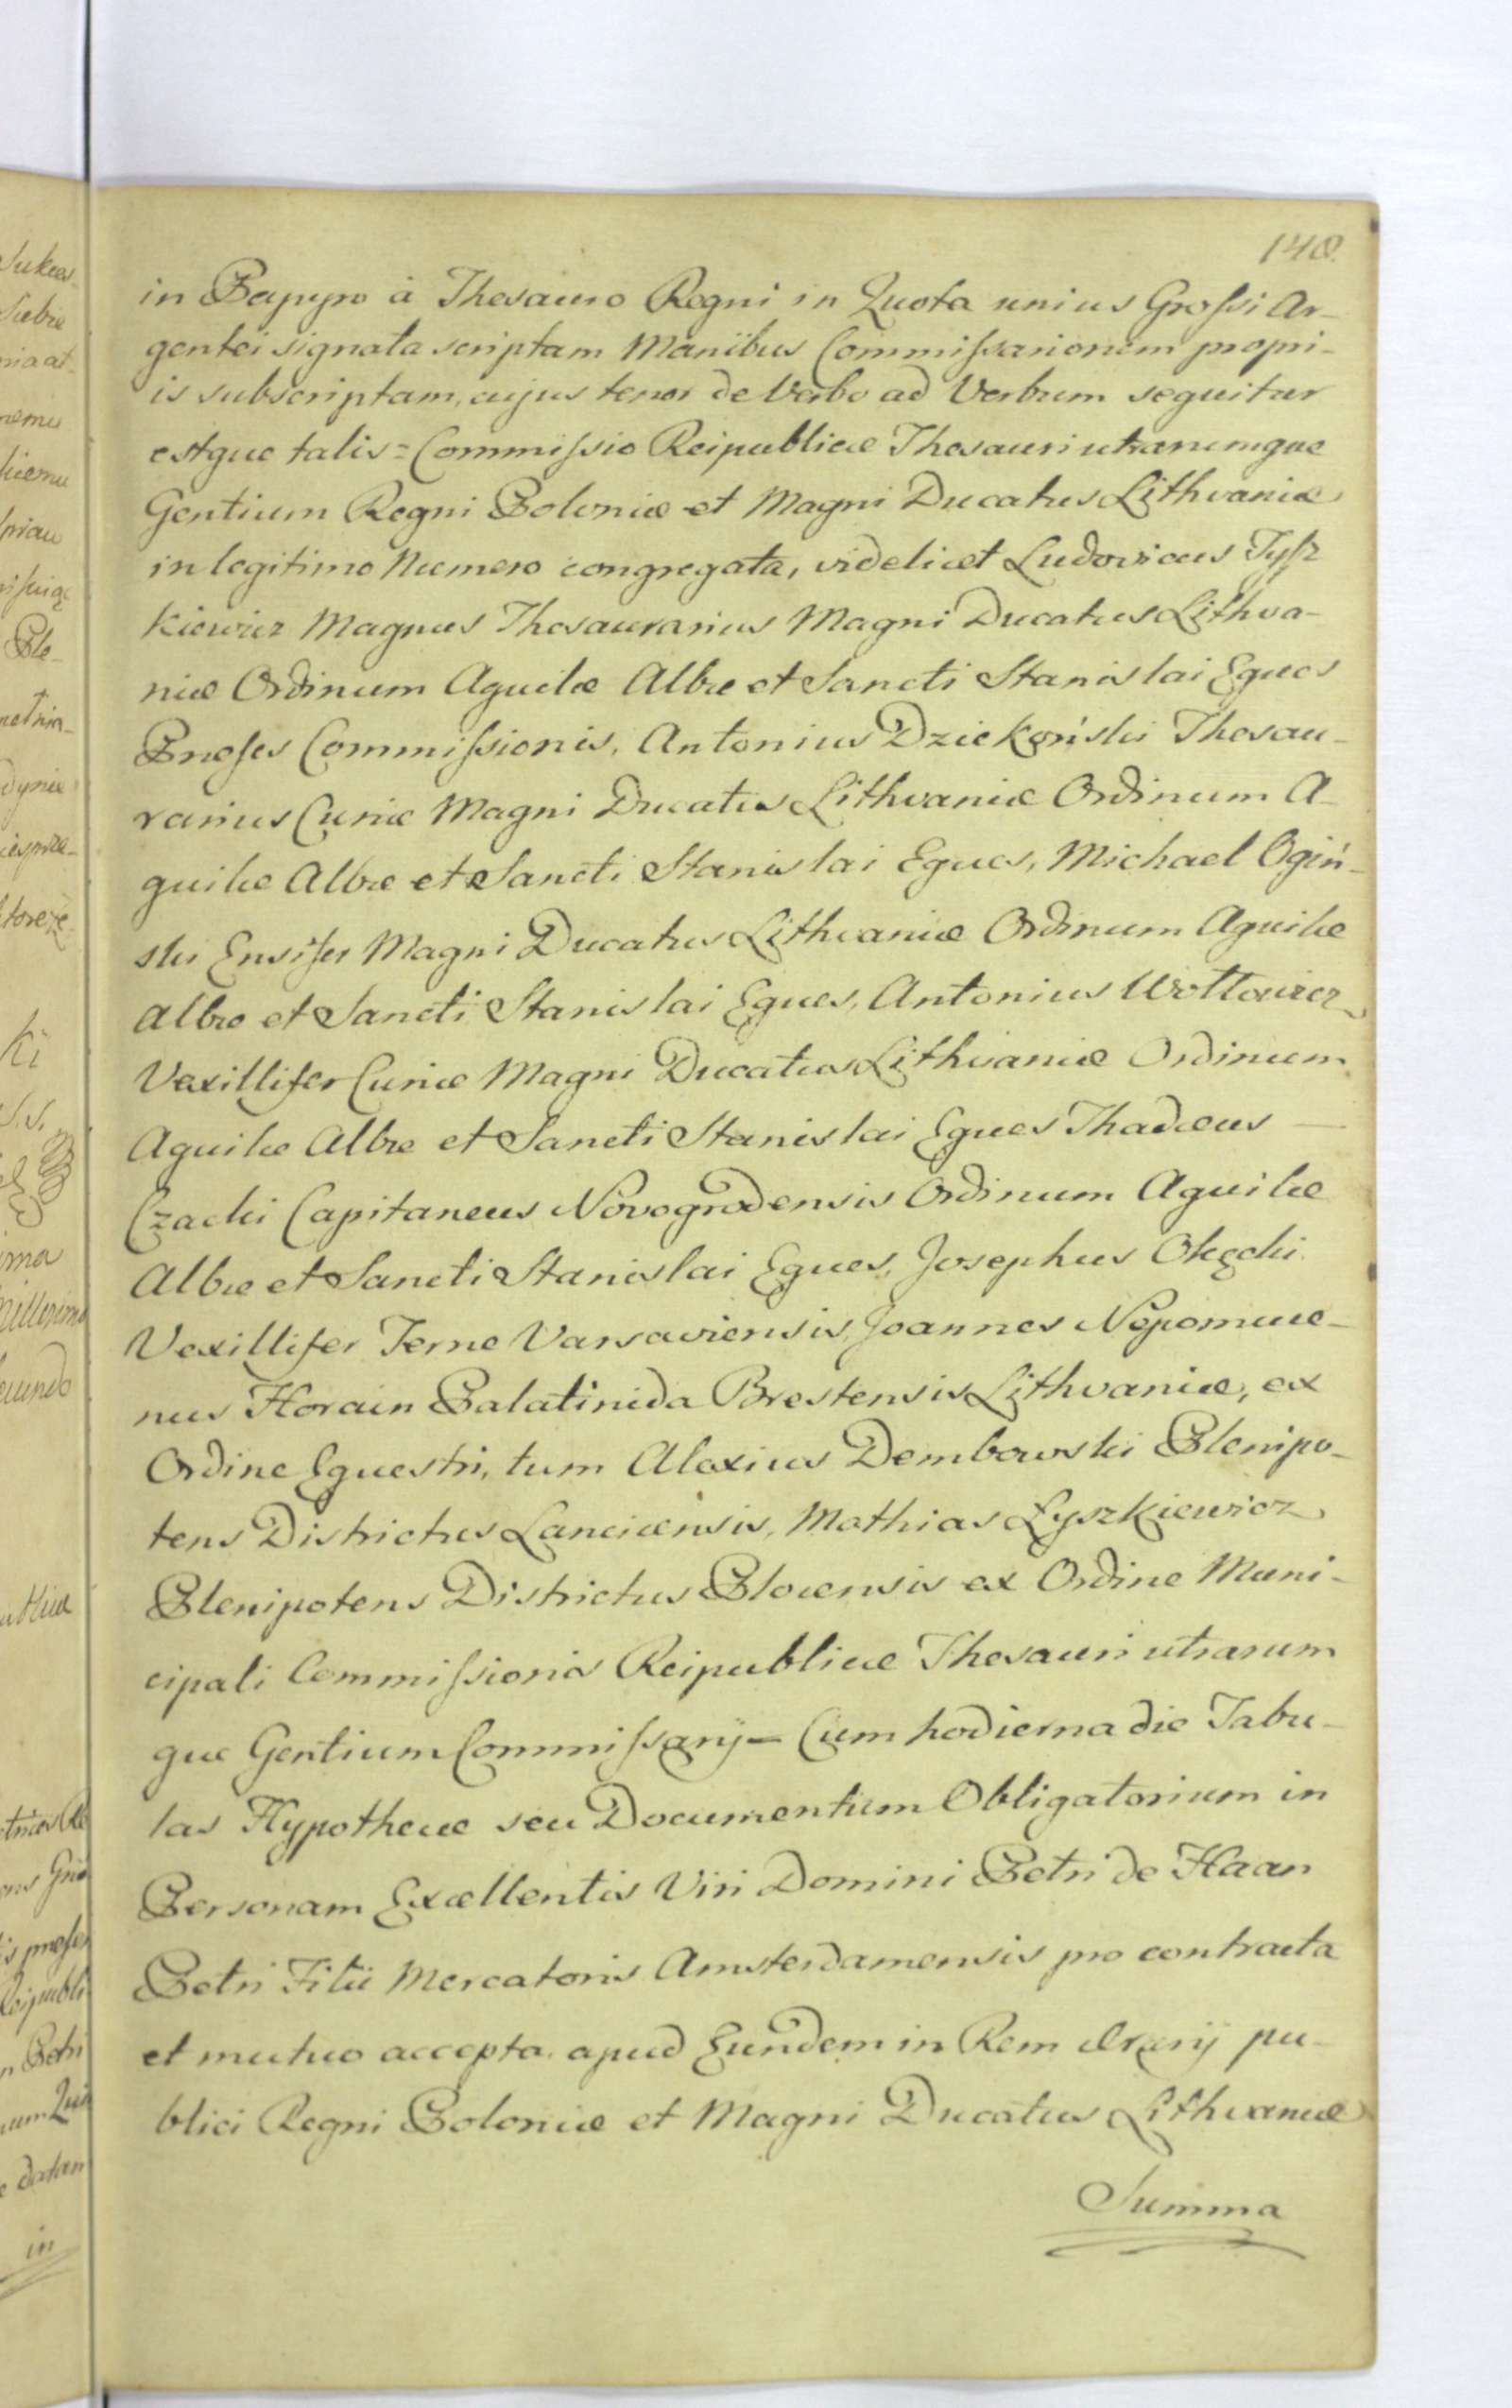 148.
in Papyro à Thesauro Regni in Quota unius Grossi Ar-
gentei signata scriptam Manibus Commissariorum propri-
is subscriptam, cujus tenor de Verbo ad Verbum sequitur
estque talis = Commissio Reipublicæ Thesauri utrarumque
Gentium Regni Poloniæ et Magni Ducatus Lithvaniæ
in legitimo Numero congregata, videlicet Ludovicus Tysz
kiewicz Magnus Thesaurarius Magni Ducatus Lithva-
niæ Ordinum Aquilæ Albæ et Sancti Stanislai Eques
Præses Commissionis, Antonius Dziekoński Thesau-
rarius Curiæ Magni Ducatus Lithvaniæ Ordinum A-
quilæ Albæ et Sancti Stanislai Eques, Michael Ogiń-
ski Ensifer Magni Ducatus Lithvaniæ Ordinum Aquilæ
Albæ et Sancti Stanislai Eques, Antonius Wołłowicz
Vexillifer Curiæ Magni Ducatus Lithvaniæ Ordinum
Aquilæ Albæ et Sancti Stanislai Eques Thadæus —
Czacki Capitaneus Novogrodensis Ordinum Aquilæ
Albæ et Sancti Stanislai Eques, Josephus Okęcki
Vexillifer Terræ Varsaviensis, Joannes Nepomuce-
nus Horain Palatinida Brestensis Lithvaniæ, ex
Ordine Equestri, tum Alexius Dembowski Plenipo-
tens Districtus Lanciciensis, Mathias Łyszkiewicz
Plenipotens Districtus Plocensis ex Ordine Muni-
cipali Commissionis Reipublicæ Thesauri utrarum
que Gentium Commissarij = Cum hodierna die Tabu-
las Hypothecæ seu Documentum Obligatorium in
Personam Excellentis Viri Domini Petri de Haan
Petri Filii Mercatoris Amsterdamensis pro contracta
et mutuo accepta apud Eundem in Rem Ærarij pu-
blici Regni Poloniæ et Magni Ducatus Lithvaniæ
Summa